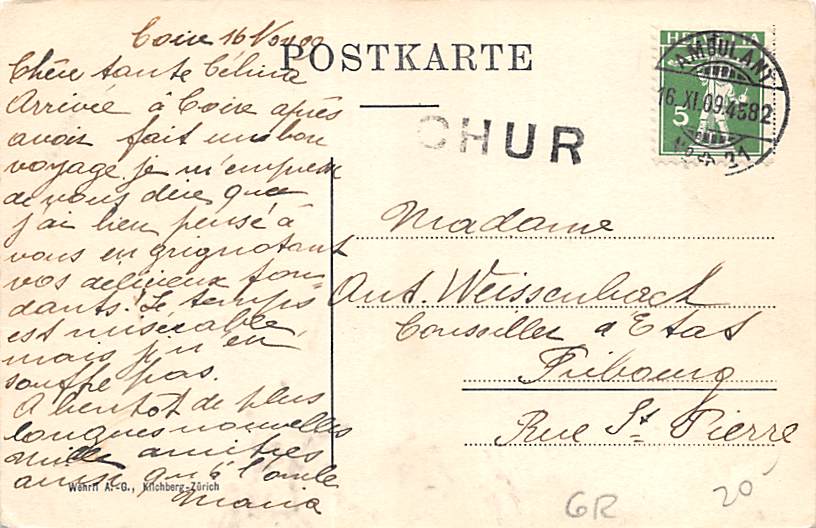 Coire 16 Nov 09
Chère tante Célina
Arrivée à Coire après
avoir fait un bon
voyage je m'empresse
de vous dire que
j'ai bien pensé à
vous en grignotant
vos délicieux fon-
dants. Le temps
est misérable,
mais je n'en
souffre pas.
A bientôt de plus
longues nouvelles
mille amitiés
ainsi qu'à l'oncle
Maria
Wehrli A.-G., Kilchberg-Zürich
POSTKARTE
CHUR
HELVETIA
5
AMBULANT
16.XI.09.4582
21
Madame
Ant. Weissenbach
Conseiller d'Etat
Fribourg
Rue St Pierre
GR
20